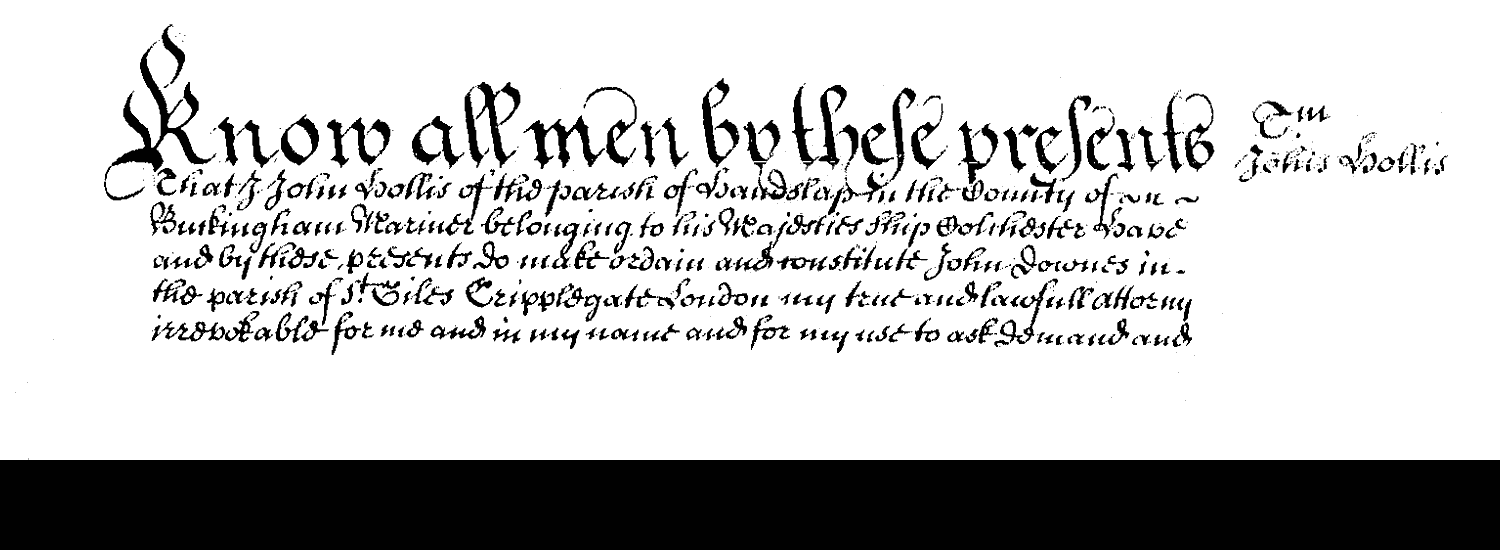 Know all men by these presents
Tm
Johis Hollis
That I John Hollis of the parish of Handslap in the County of
Buckingham Mariner belonging to his Majesties Ship Colchester Have
and by these presents do make ordain and constitute John Downes in
the parish of St Giles Cripplegate London my true and lawfull Attorny
irrevokable for me and in my name and for my use to ask demand and